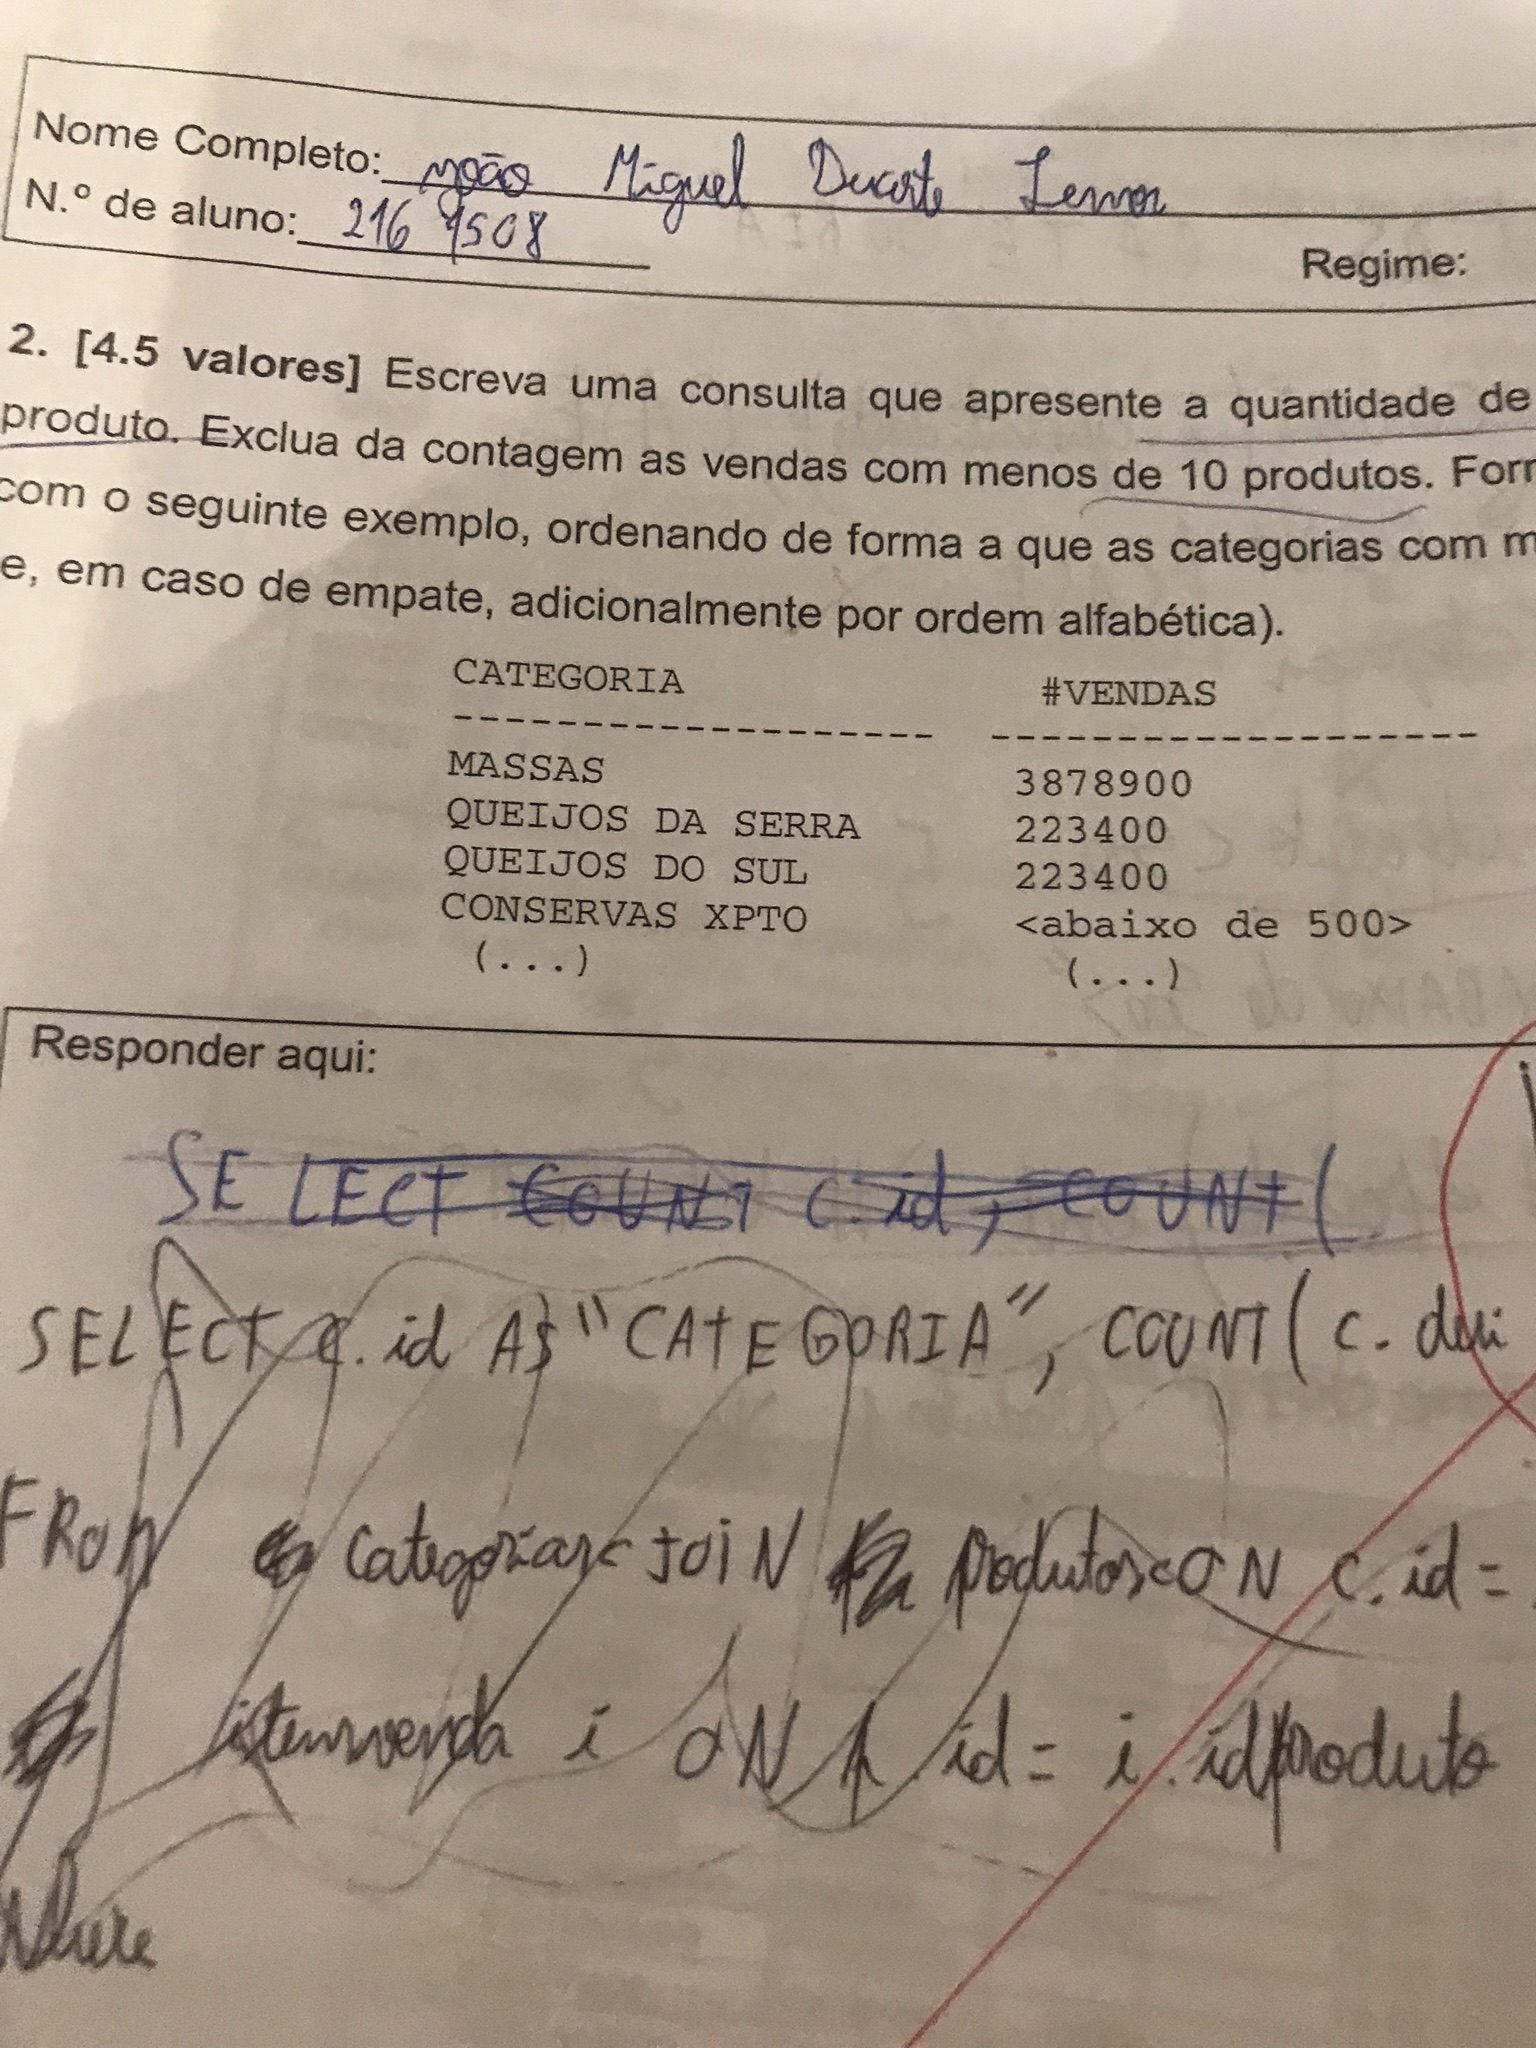 Nome Completo: João Miguel Duarte Lemos
N.º de aluno: 2161508
Regime:
2. [4.5 valores] Escreva uma consulta que apresente a quantidade de
produto. Exclua da contagem as vendas com menos de 10 produtos. Form
com o seguinte exemplo, ordenando de forma a que as categorias com m
e, em caso de empate, adicionalmente por ordem alfabética).
CATEGORIA #VENDAS
------------------- -------------------
MASSAS 3878900
QUEIJOS DA SERRA 223400
QUEIJOS DO SUL 223400
CONSERVAS XPTO <abaixo de 500>
(...) (...)
Responder aqui:
SELECT COUNT c.id, COUNT(
SELECT c.id AS "CATEGORIA", COUNT( c.
FROM categorias c JOIN produtos ON c.id =
itemsvenda i ON p.id = i.idproduto
Where